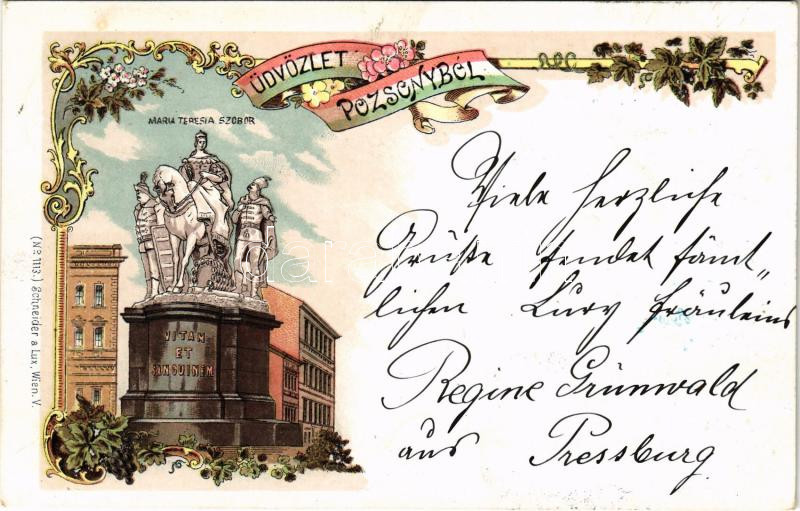 ÜDVÖZLET
POZSONYBÓL
MARIA TERESIA SZOBOR
VITAM
ET
SANGUINEM
(No 1113.) Schneider & Lux, Wien. V.
Viele herzliche
Grüße sendet sämt„
lichen Fräuleins
Regine Grünwald
aus Pressburg.